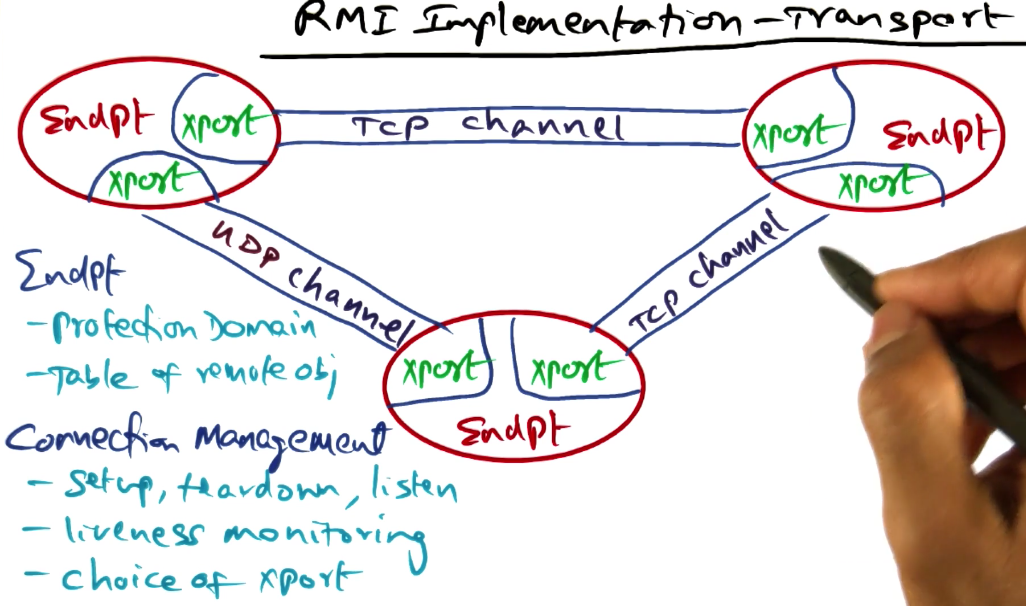 RMI Implementation - Transport
Endpt
xport
TCP channel
xport
Endpt
xport
xport
UDP channel
TCP channel
xport
xport
Endpt
Endpt
- Protection Domain
- Table of remote obj
Connection Management
- setup, teardown, listen
- liveness monitoring
- choice of xport